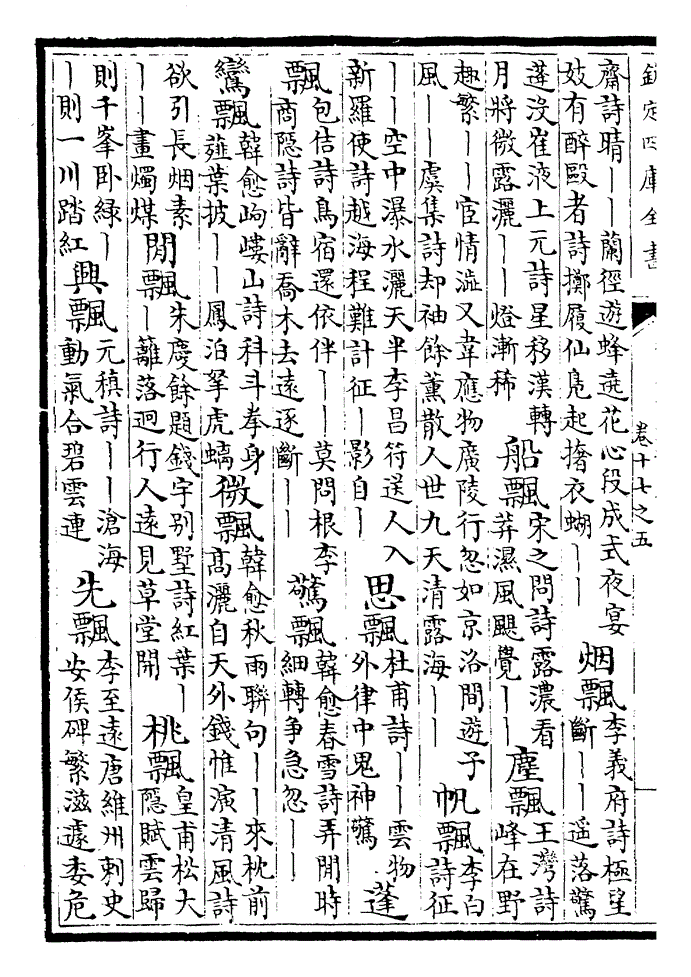 欽定四庫全書
卷十七之五
齋詩晴丨丨蘭徑遊蜂遶花心段成式夜宴
妓有醉毆者詩擲履仙鳧起撦衣蝴丨丨
烟飄
李義府詩極望
斷丨丨遥落驚
蓬沒崔液上元詩星移漢轉
月將微露灑丨丨燈漸稀
船飄
宋之問詩露濃看
莽濕風颶覺丨丨
塵飄
王灣詩
峰在野
趣繁丨丨宦情澁又韋應物廣陵行忽如京洛間遊子
風丨丨虞集詩却袖餘薰散人世九天清露海丨丨
帆飄
李白
詩征
丨丨空中瀑水灑天半李昌符送人入
新羅使詩越海程難計征丨影自丨
思飄
杜甫詩丨丨雲物
外律中鬼神驚
蓬
飄
包佶詩鳥宿還依伴丨丨莫問根李
商隱詩皆辭喬木去遠逐斷丨丨
驚飄
韓愈春雪詩弄閒時
細轉争急忽丨丨
鸞飄
韓愈岣嶁山詩科斗拳身
薤葉披丨丨鳳泊拏虎螭
微飄
韓愈秋雨聯句丨丨來枕前
高灑自天外錢惟演清風詩
欲引長烟素
丨丨畫燭煤
閒飄
朱慶餘題錢宇别墅詩紅葉丨
丨籬落迥行人遠見草堂開
桃飄
皇甫松大
隱賦雲歸
則千峯卧緑丨
丨則一川踏紅
興飄
元稹詩丨丨滄海
動氣合碧雲連
先飄
李至遠唐維州刺史
安侯碑繁滋遽委危